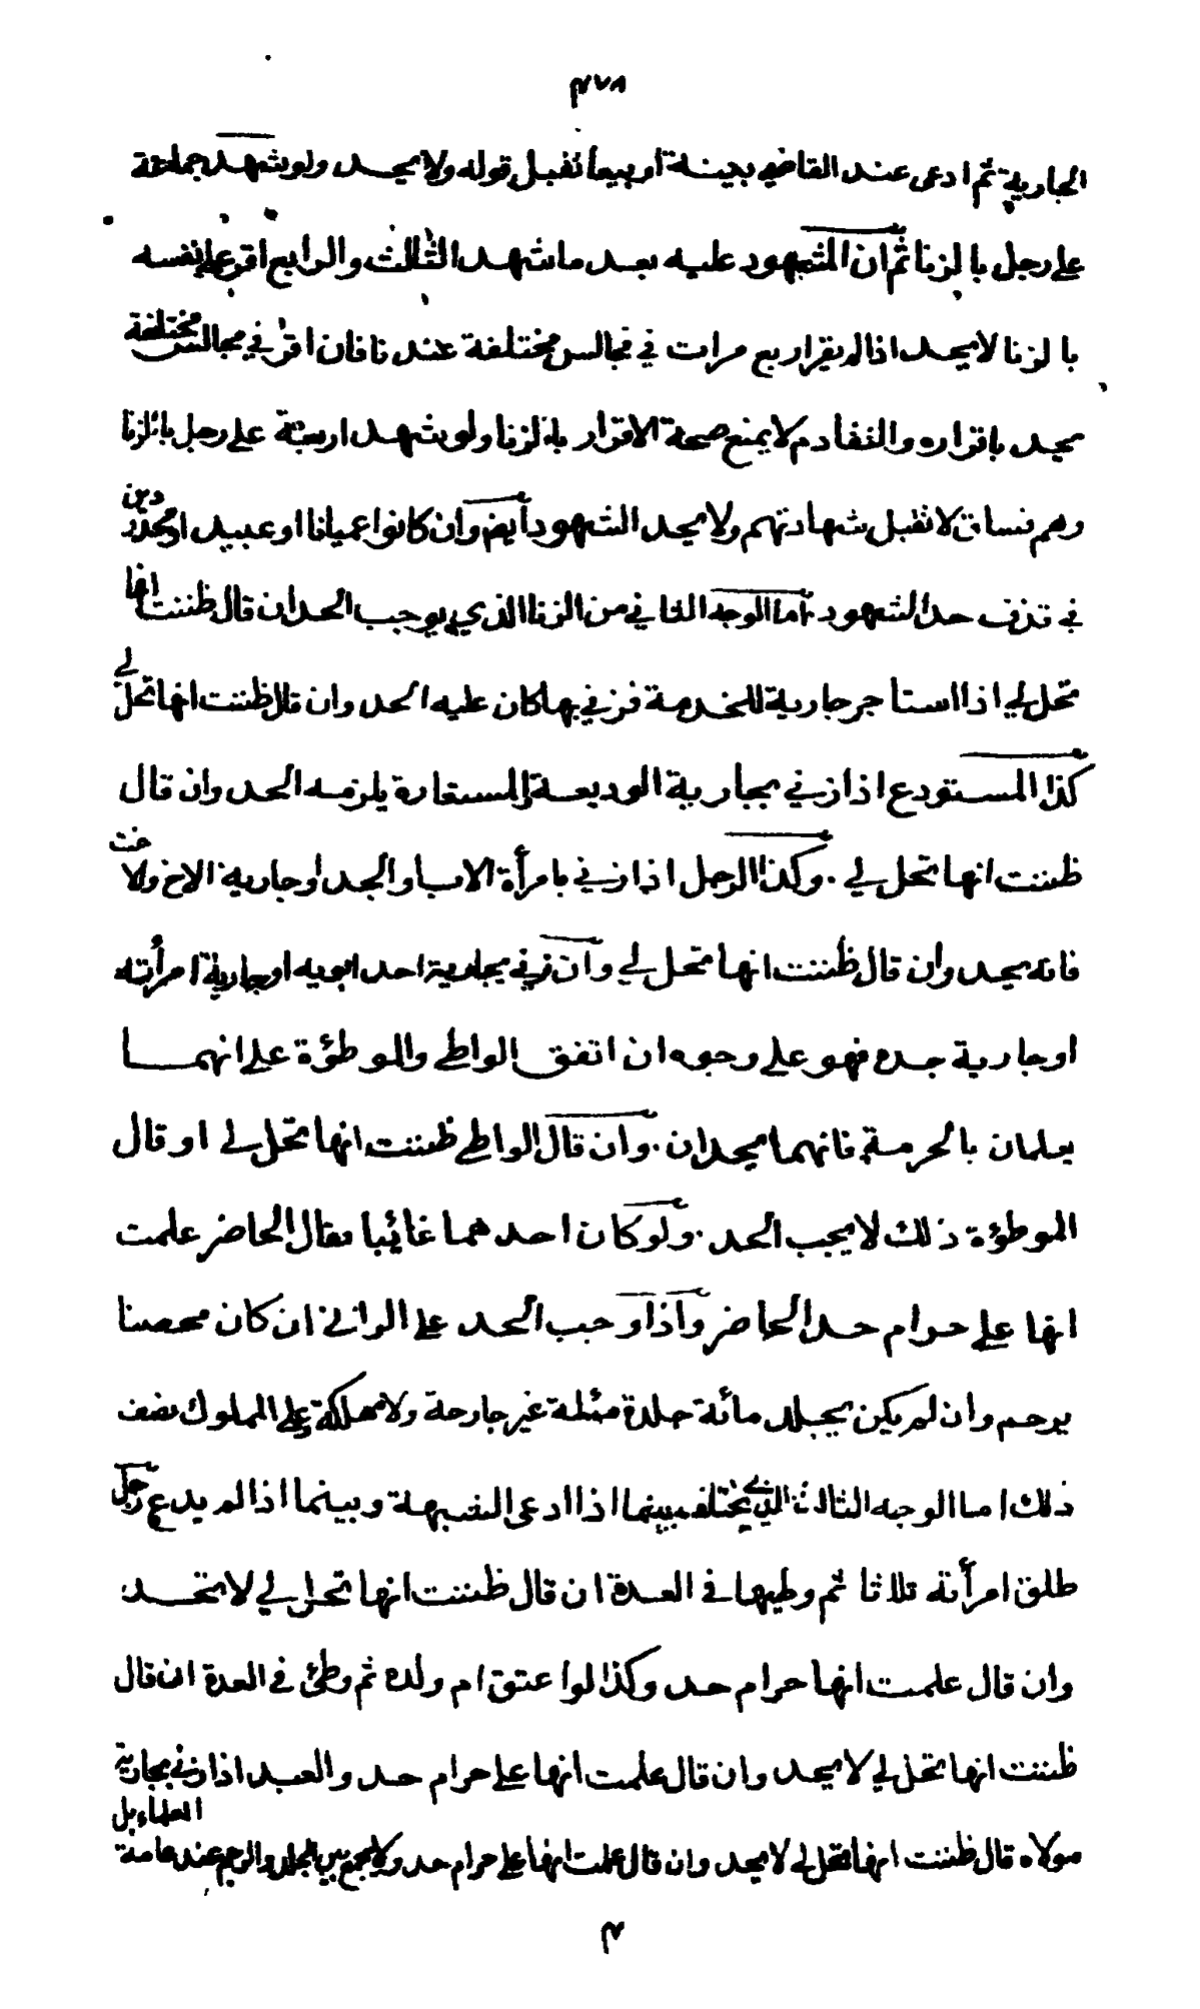 ٣٧٨
الجارية ثم ادعى عند القاضي ببينة او بيعا تقبل قوله ولا يحد ولو شهد جماعة
على رجل بالزنا ثم ان المشهود عليه بعد ما شهد الثالث والرابع اقر على نفسه
بالزنا لا يحد اذا لم يقر اربع مرات في مجالس مختلفة عندنا فان اقر في مجالس مختلفة
يحد باقراره والتقادم لا يمنع صحة الاقرار بالزنا ولو شهد اربعة على رجل بالزنا
وهم فساق لا تقبل شهادتهم ولا يحد الشهود أيض وان كانوا عميانا او عبيد او محدودين
في قذف حد الشهود اما الوجه الثاني من الزنا الذي يوجب الحد ان قال ظننت انها
تحل لي اذا استأجر جارية للخدمة فزني بها كان عليه الحد وان قال ظننت انها تحل لي
كذا المستودع اذا زني بجارية الوديعة والمستعارة يلزمه الحد وان قال
ظننت انها تحل لي. وكذا الرجل اذا زني بامرأة الاب او الجد او جارية الاخ والاخت
فانه يحد وان قال ظننت انها تحل لي وان زني بجارية احد ابويه او جارية امرأته
او جارية جده فهو على وجوه ان اتفق الواطي والموطؤة على انهما
يعلمان بالحرمة فانهما يحدان. وان قال الواطي ظننت انها تحل لي او قال
الموطؤة ذلك لا يجب الحد. ولو كان احدهما غائبا فقال الحاضر علمت
انها على حرام حد الحاضر واذا وجب الحد على الزاني ان كان محصنا
يرجم وان لم يكن يجلد مائة جلدة مئلمة غير جارحة ولا مهلكة وعلى المملوك نصف
ذلك اما الوجه الثالث الذي يختلف بينما اذا ادعى الشبهة وبينما اذا لم يدع رجل
طلق امرأته ثلاثا ثم وطيها في العدة ان قال ظننت انها تحل لي لا تحد
وان قال علمت انها حرام حد وكذا لو اعتق ام ولده ثم وطئ في العدة ان قال
ظننت انها تحل لي لا يحد وان قال علمت انها على حرام حد والعبد اذا زني بجارية
مولاه قال ظننت انها تحل لي لا يحد وان قال علمت انها على حرام حد ولا يجمع بين الجلد والرجم عند عامة العلماء بل
٣